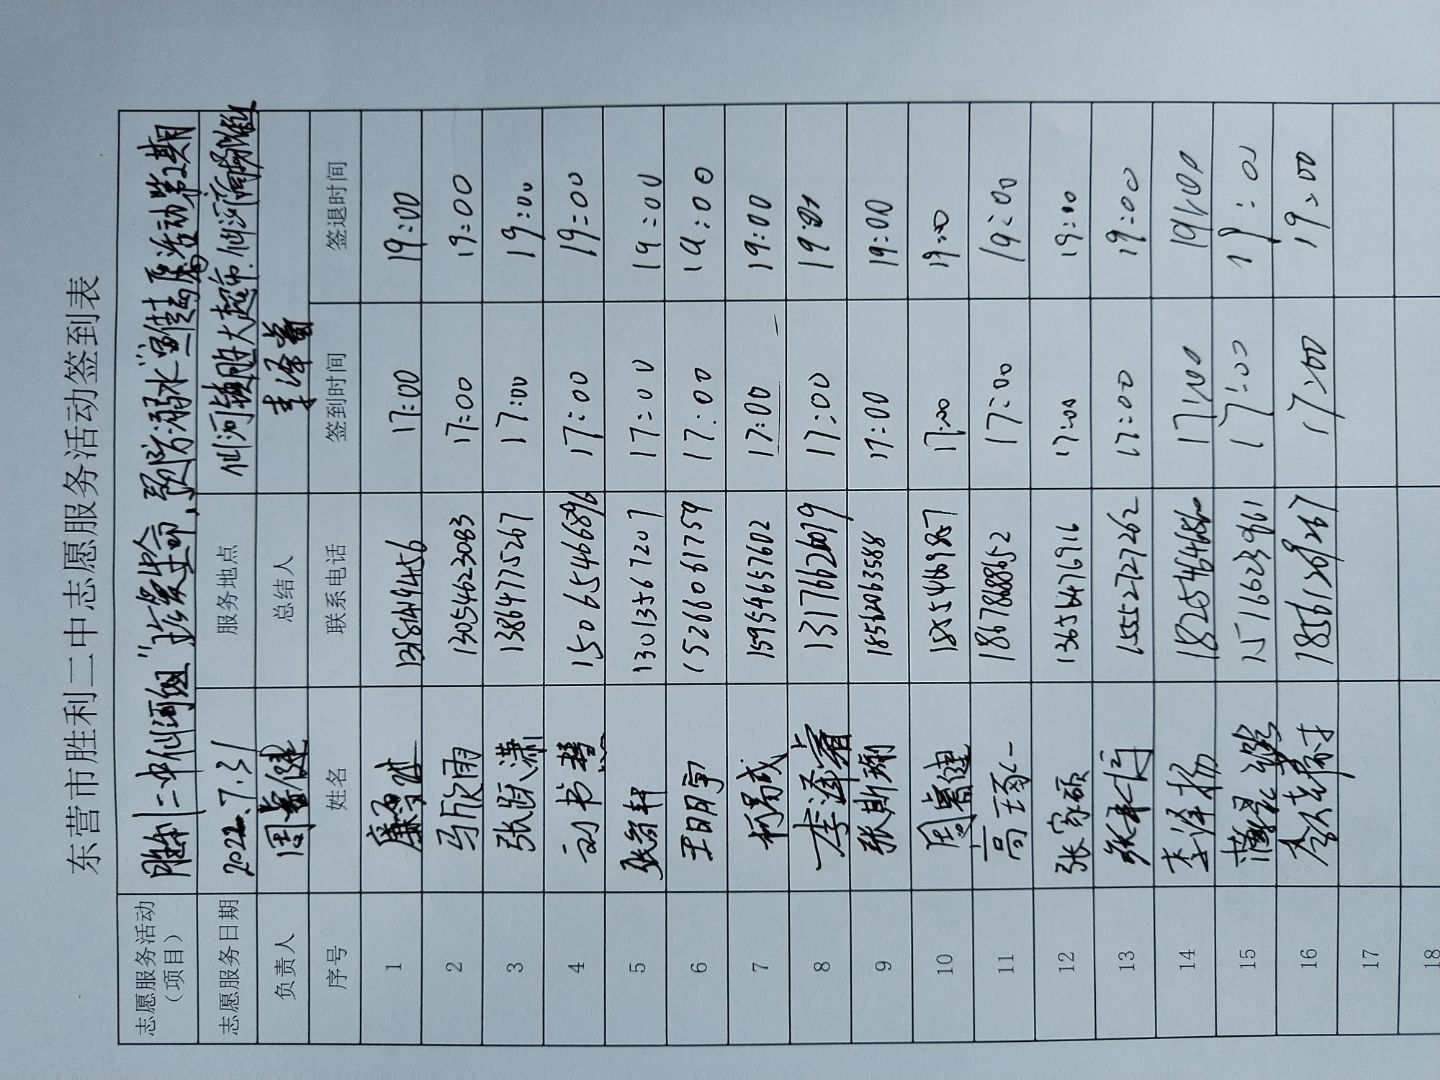 东营市胜利二中志愿服务活动签到表
志愿服务活动（项目） 胜利二中仙河组"珍爱生命，预防溺水"宣传志愿活动第2期
志愿服务日期 2022.7.31 服务地点 仙河镇胜大超市.仙河商场附近
负责人 周睿健 总结人 李泽睿
序号 姓名 联系电话 签到时间 签退时间
1 17:00 19:00
2 马欣雨 13054623083 17:00 19:00
3 张跃潇 13864775267 17:00 19:00
4 15065466896 17:00 19:00
5 张容轩 13013567207 17:00 19:00
6 王明宇 15266061759 17:00 19:00
7 杨易成 15954657602 17:00 19:00
8 李泽睿 13176626079 17:00 19:01
9 张斯翔 18562063588 17:00 19:00
10 周睿健 18554469857 17:00 19:00
11 高琢一 18678888652 17:00 19:00
12 张家硕 13656476916 17:00 19:00
13 15552727262 17:00 19:00
14 李泽杨 17:00 19:00
15 15166239161 17:00 19:00
16 18561269267 17:00 19:00
17
18